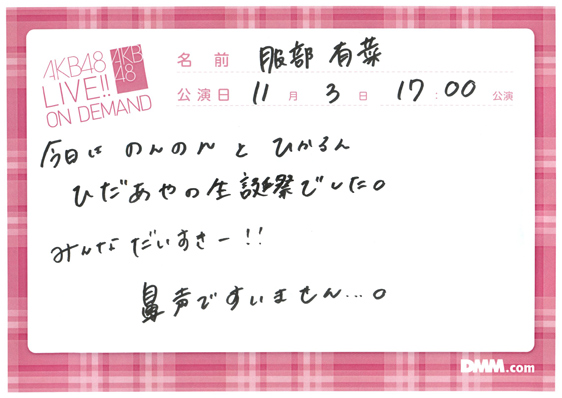 AKB48
LIVE!!
ON DEMAND
AKB
48
名前 服部有菜
公演日 11月3日 17:00公演
今日は のんのん と ひかるん
ひだあやの生誕祭でした。
みんな だいすきー!!
鼻声ですいません…。
DMM.com